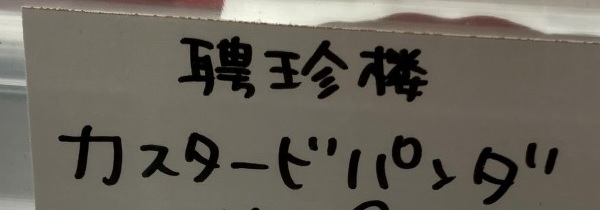 聘珍楼
カスタードパンダ